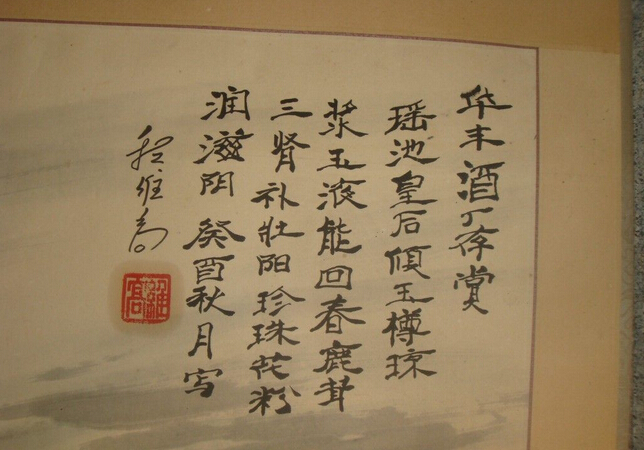 华丰酒厂存赏
瑶池皇后倾玉樽琼
浆玉液能回春鹿茸
三肾补壮阳珍珠花粉
润滋阴癸酉秋月写
程维高